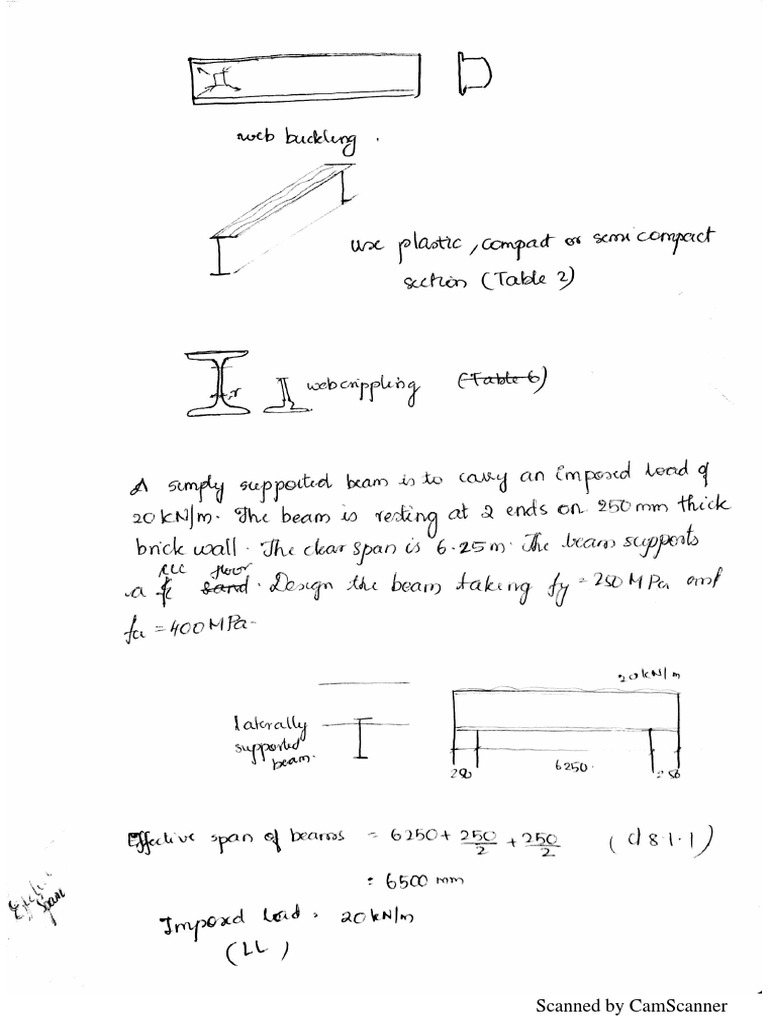 web buckling .
use plastic, compact or semi compact
section (Table 2)
web crippling (Table 6)
A simply supported beam is to carry an imposed load of
20 kN/m. The beam is resting at 2 ends on 250 mm thick
brick wall. The clear span is 6.25 m. The beam supports
RCC floor
a sand. Design the beam taking fy = 250 MPa and
= 400 MPa-
20 kN/m
laterally
supported
beam.
6250.
Effective span of beams = 6250 + 250/2 + 250/2 (cl 8.1.1)
= 6500 mm
Effective
span
Imposed load = 20 kN/m
(LL)
Scanned by CamScanner